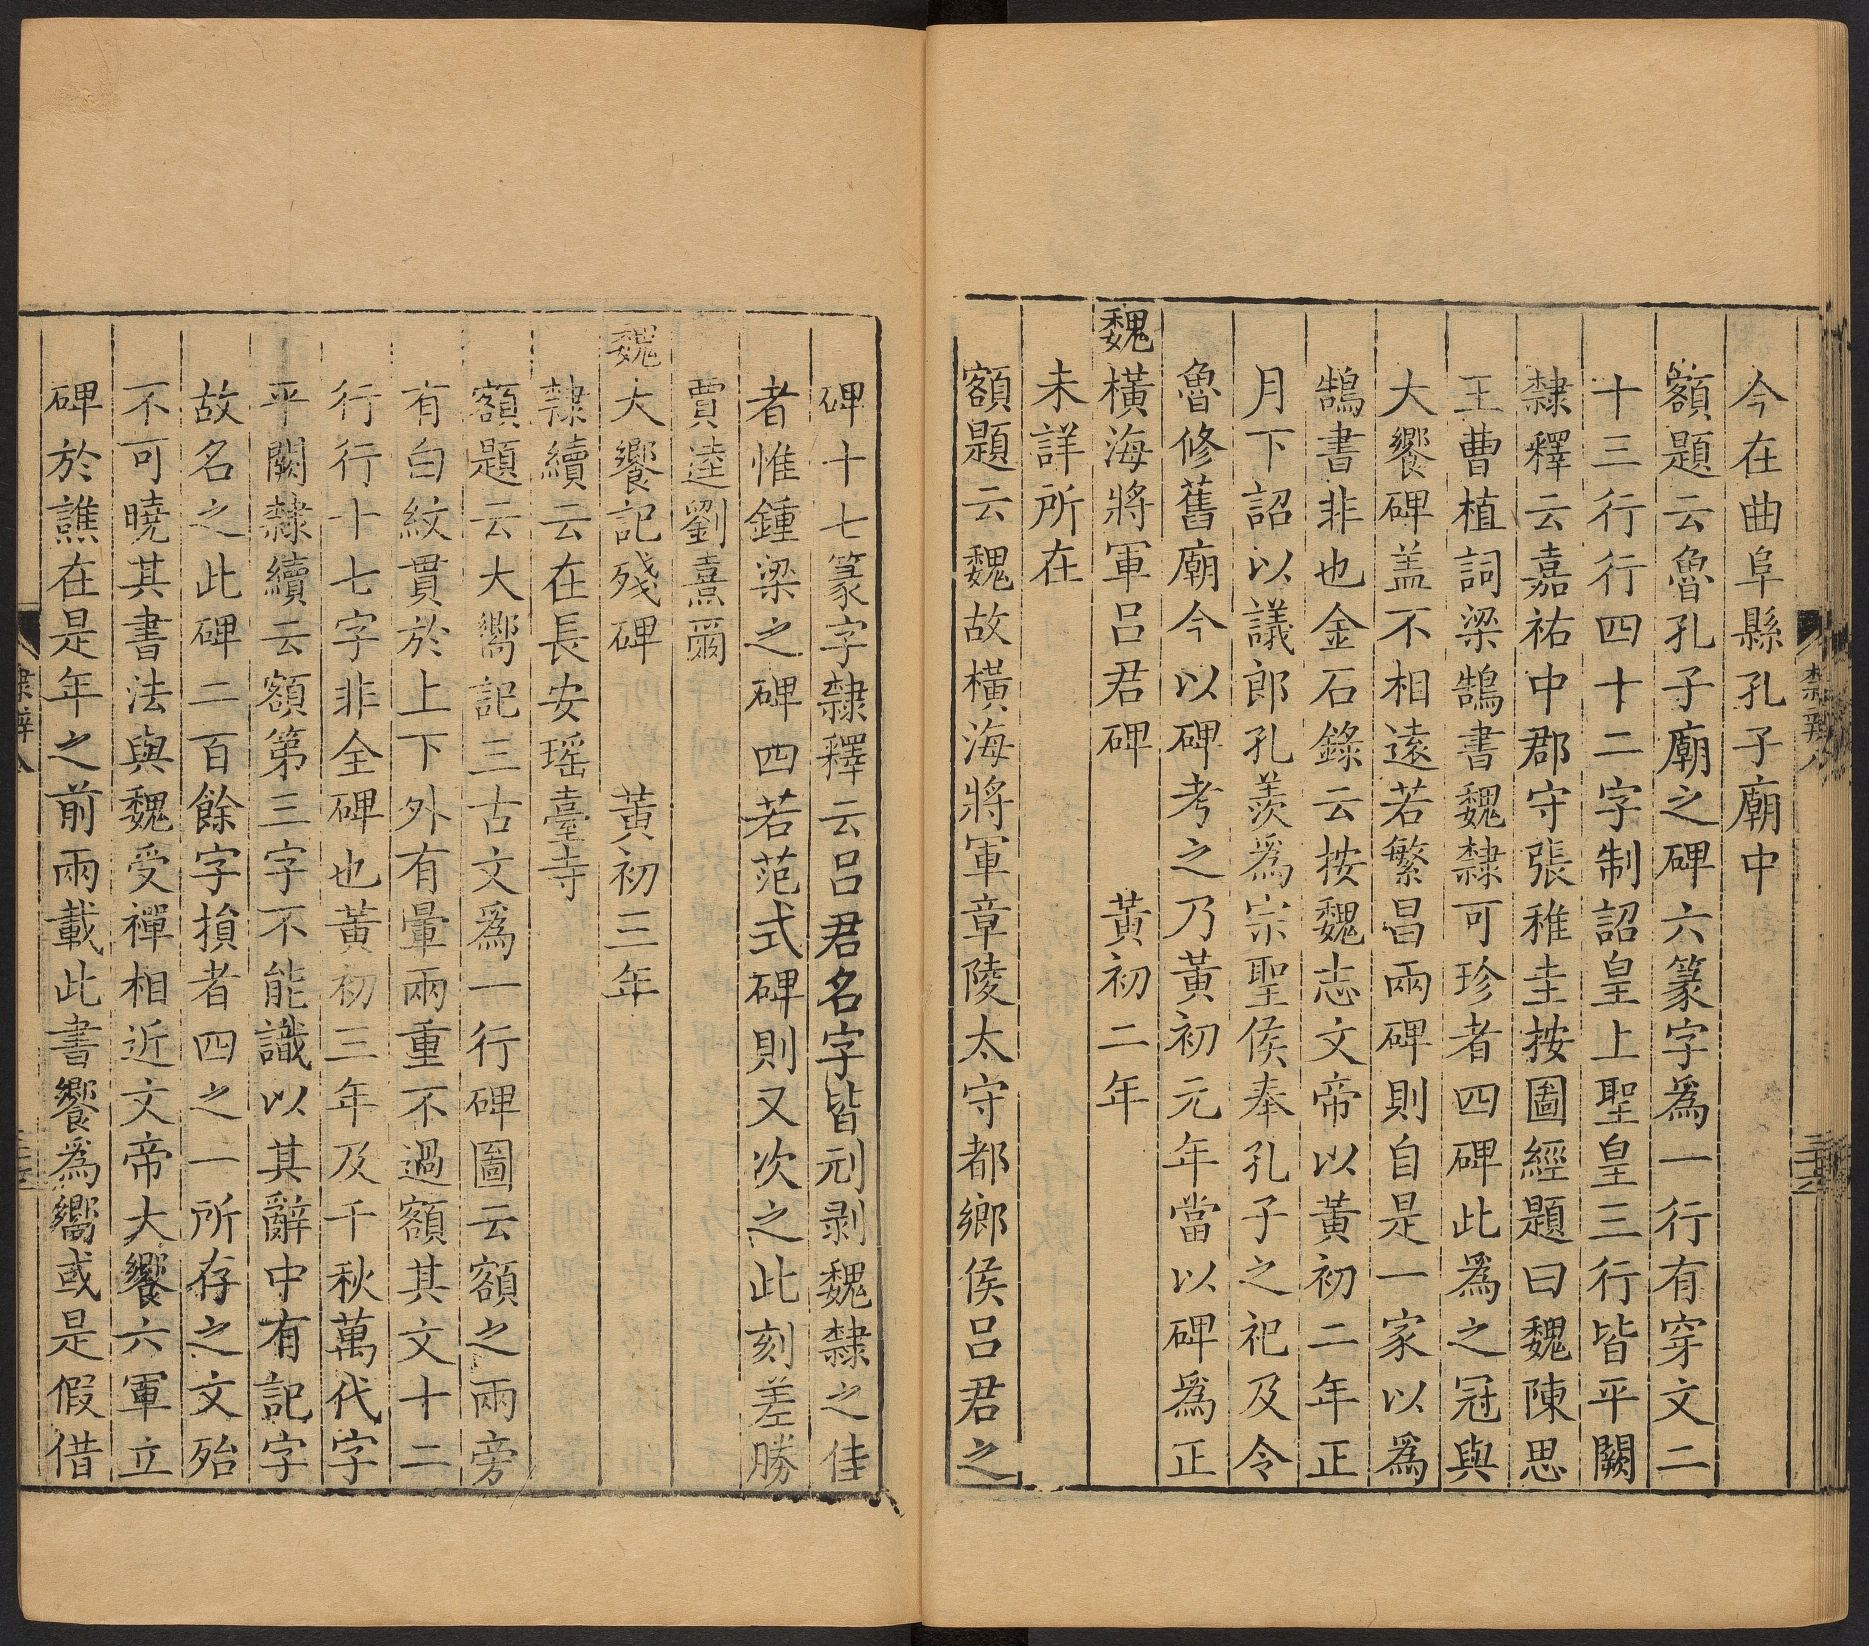 今在曲阜縣孔子廟中
額題云魯孔子廟之碑六篆字爲一行有穿文二
十三行行四十二字制詔皇上聖皇三行皆平闕
隸釋云嘉祐中郡守張稚圭按圖經題曰魏陳思
王曹植詞梁鵠書魏隸可珍者四碑此爲之冠與
大饗碑盖不相遠若繁昌兩碑則自是一家以爲
鵠書非也金石錄云按魏志文帝以黃初二年正
月下詔以議郎孔羨爲宗聖侯奉孔子之祀及令
魯修舊廟今以碑考之乃黃初元年當以碑爲正
魏橫海將軍呂君碑 黃初二年
未詳所在
額題云魏故橫海將軍章陵太守都鄉侯呂君之
碑十七篆字隸釋云呂君名字皆刓剥魏隸之佳
者惟鍾梁之碑四若范式碑則又次之此刻差勝
賈逵劉熹爾
魏大饗記殘碑 黃初三年
隸續云在長安瑶臺寺
額題云大嚮記三古文爲一行碑圖云額之兩旁
有白紋貫於上下外有暈兩重不過額其文十二
行行十七字非全碑也黃初三年及千秋萬代字
平闕隸續云額第三字不能識以其辭中有記字
故名之此碑二百餘字損者四之一所存之文殆
不可曉其書法與魏受禪相近文帝大饗六軍立
碑於譙在是年之前兩載此書饗爲嚮或是假借